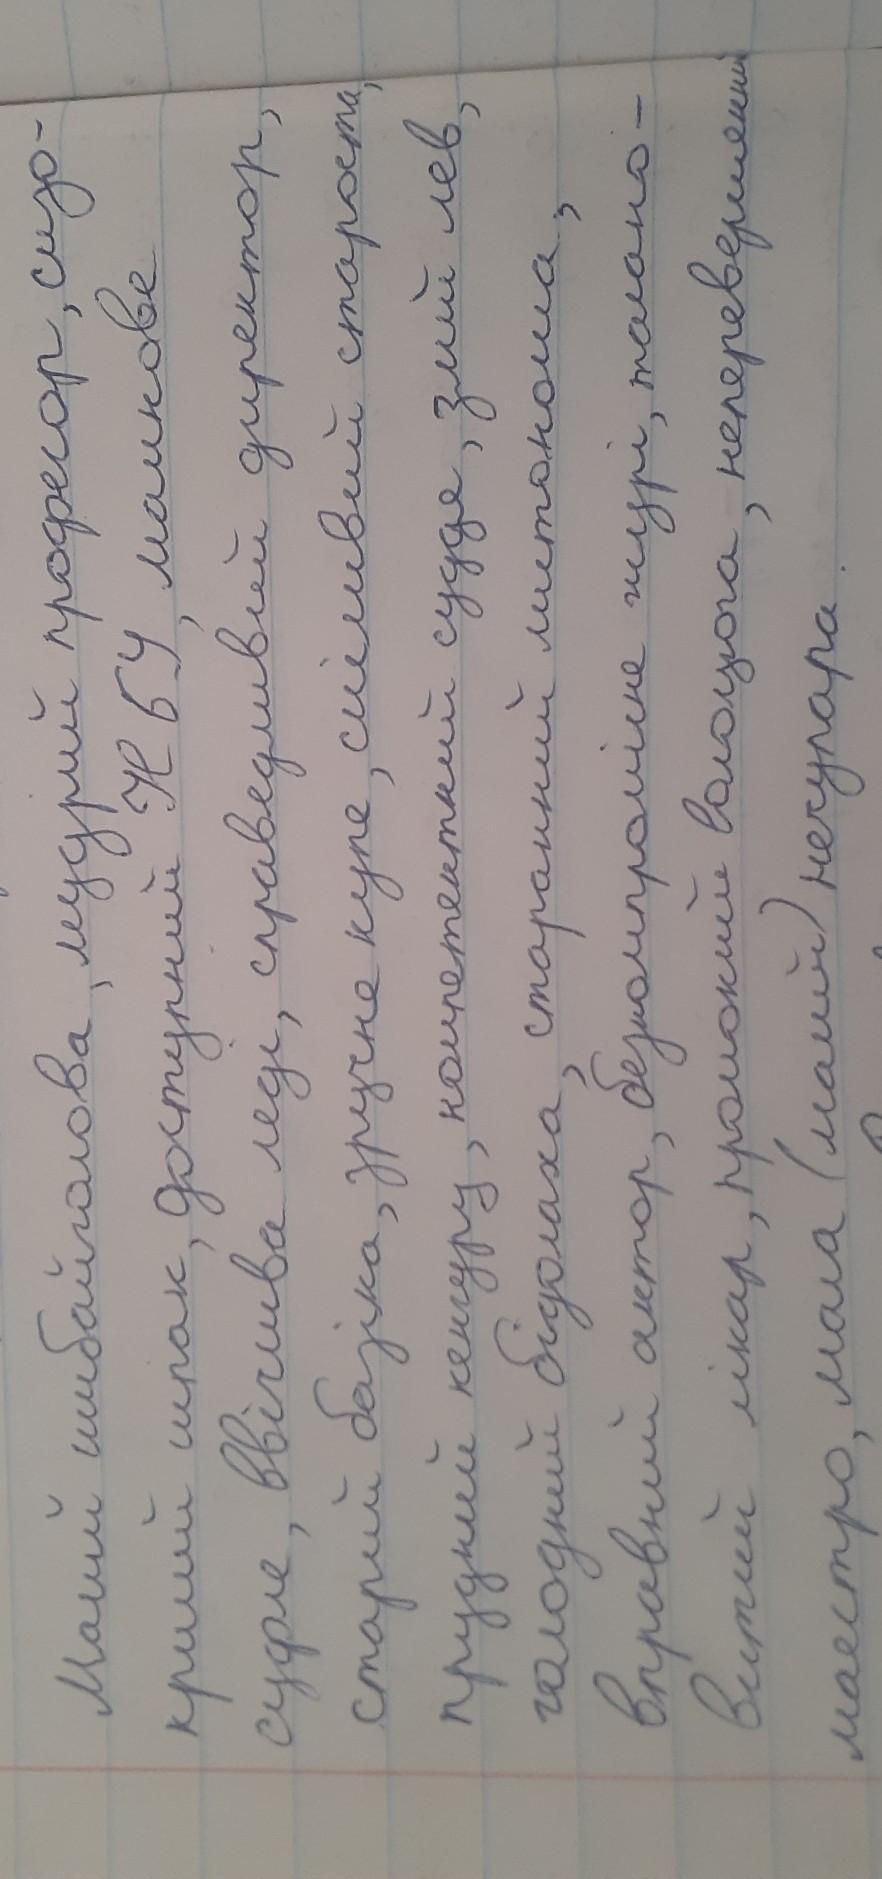 Малий шибайголова, мудрий професор, сизо-
крилий шпак, доступний НБУ, мамнове
суфле, ввічлива леді, справедливий директор,
старий базіка, зручне купе, сміливий староста,
прудкий кенгуру, компетентний суддя, злий лев,
голодний бідолаха, старанний листоноша,
вправний актор, безкомпромісне журі, талано-
витий лікар, промоклий волоцюга, неперевершений
маестро, мала (малий) нечупара.